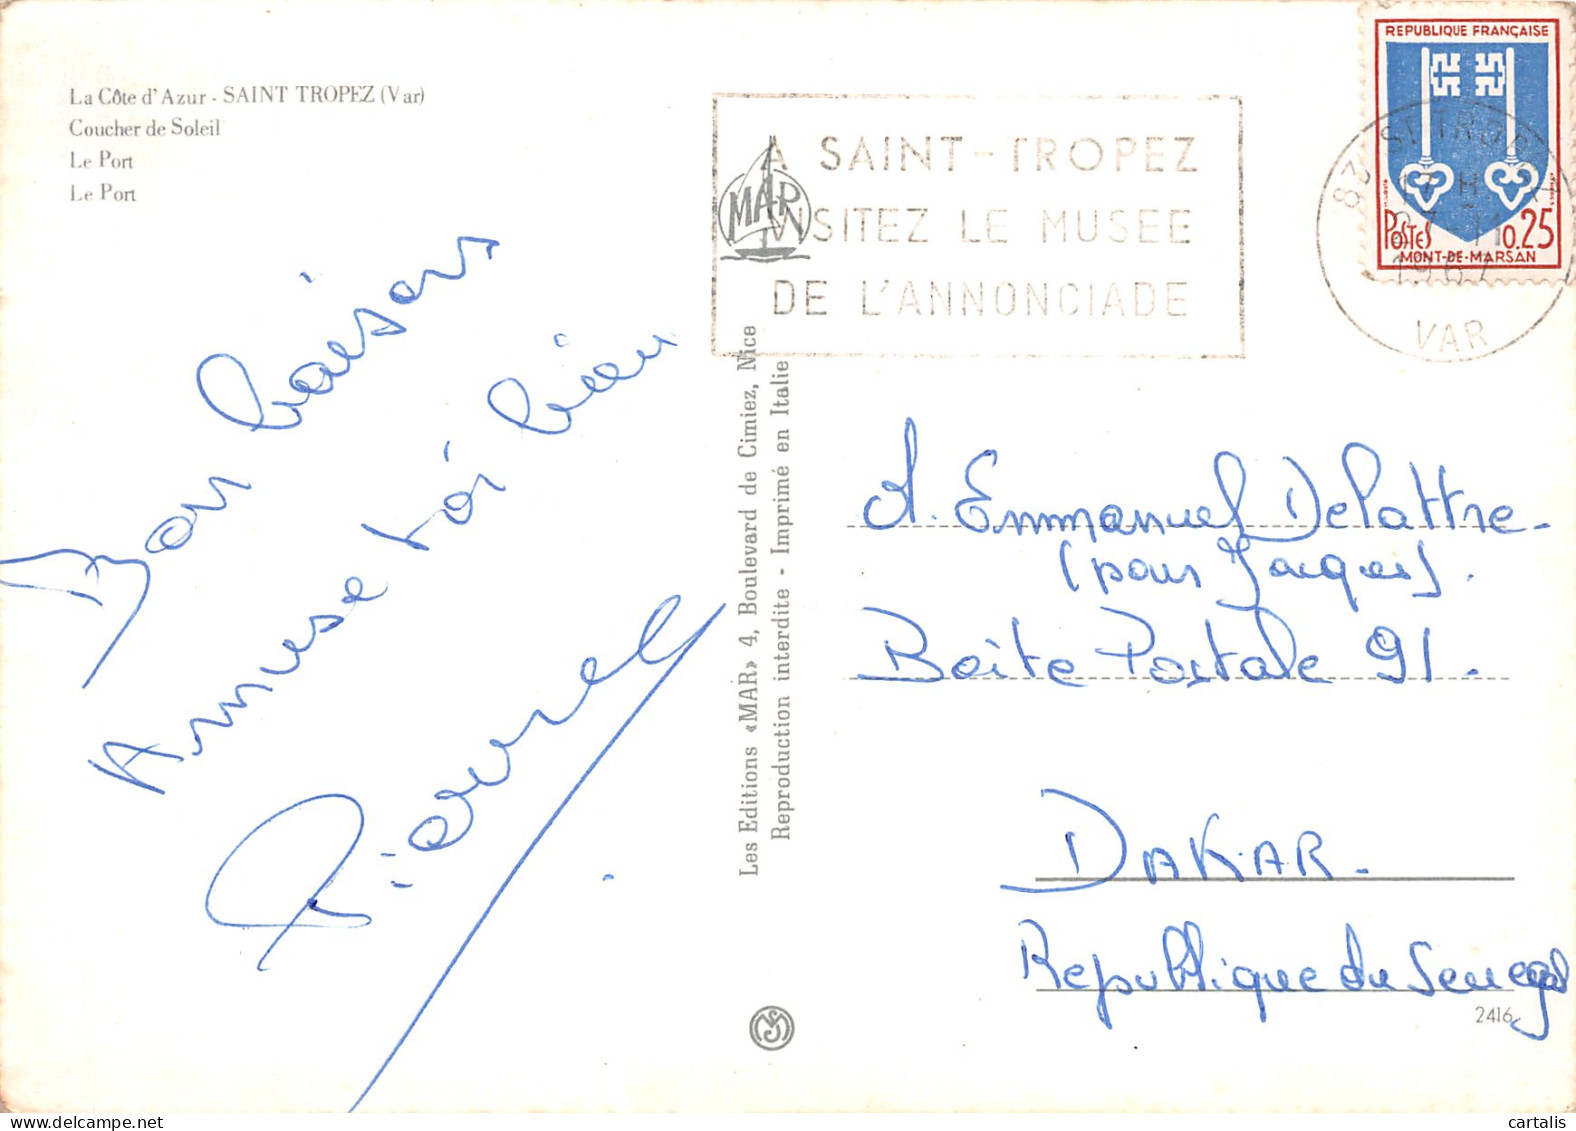 La Côte d'Azur - SAINT TROPEZ (Var)
Coucher de Soleil
Le Port
Le Port
A SAINT-TROPEZ
VISITEZ LE MUSEE
DE L'ANNONCIADE
MAR
REPUBLIQUE FRANÇAISE
POSTES 0.25
MONT-DE-MARSAN
83 ST TROPEZ
17 H
1967
VAR
Bon baisers
Amuse toi bien
Les Editions «MAR» 4, Boulevard de Cimiez, Nice
Reproduction interdite - Imprimé en Italie
A. Emmanuel Delattre -
(pour Jacques).
Boite Postale 91.
DAKAR.
Republique du Senegal
2416
cartalis